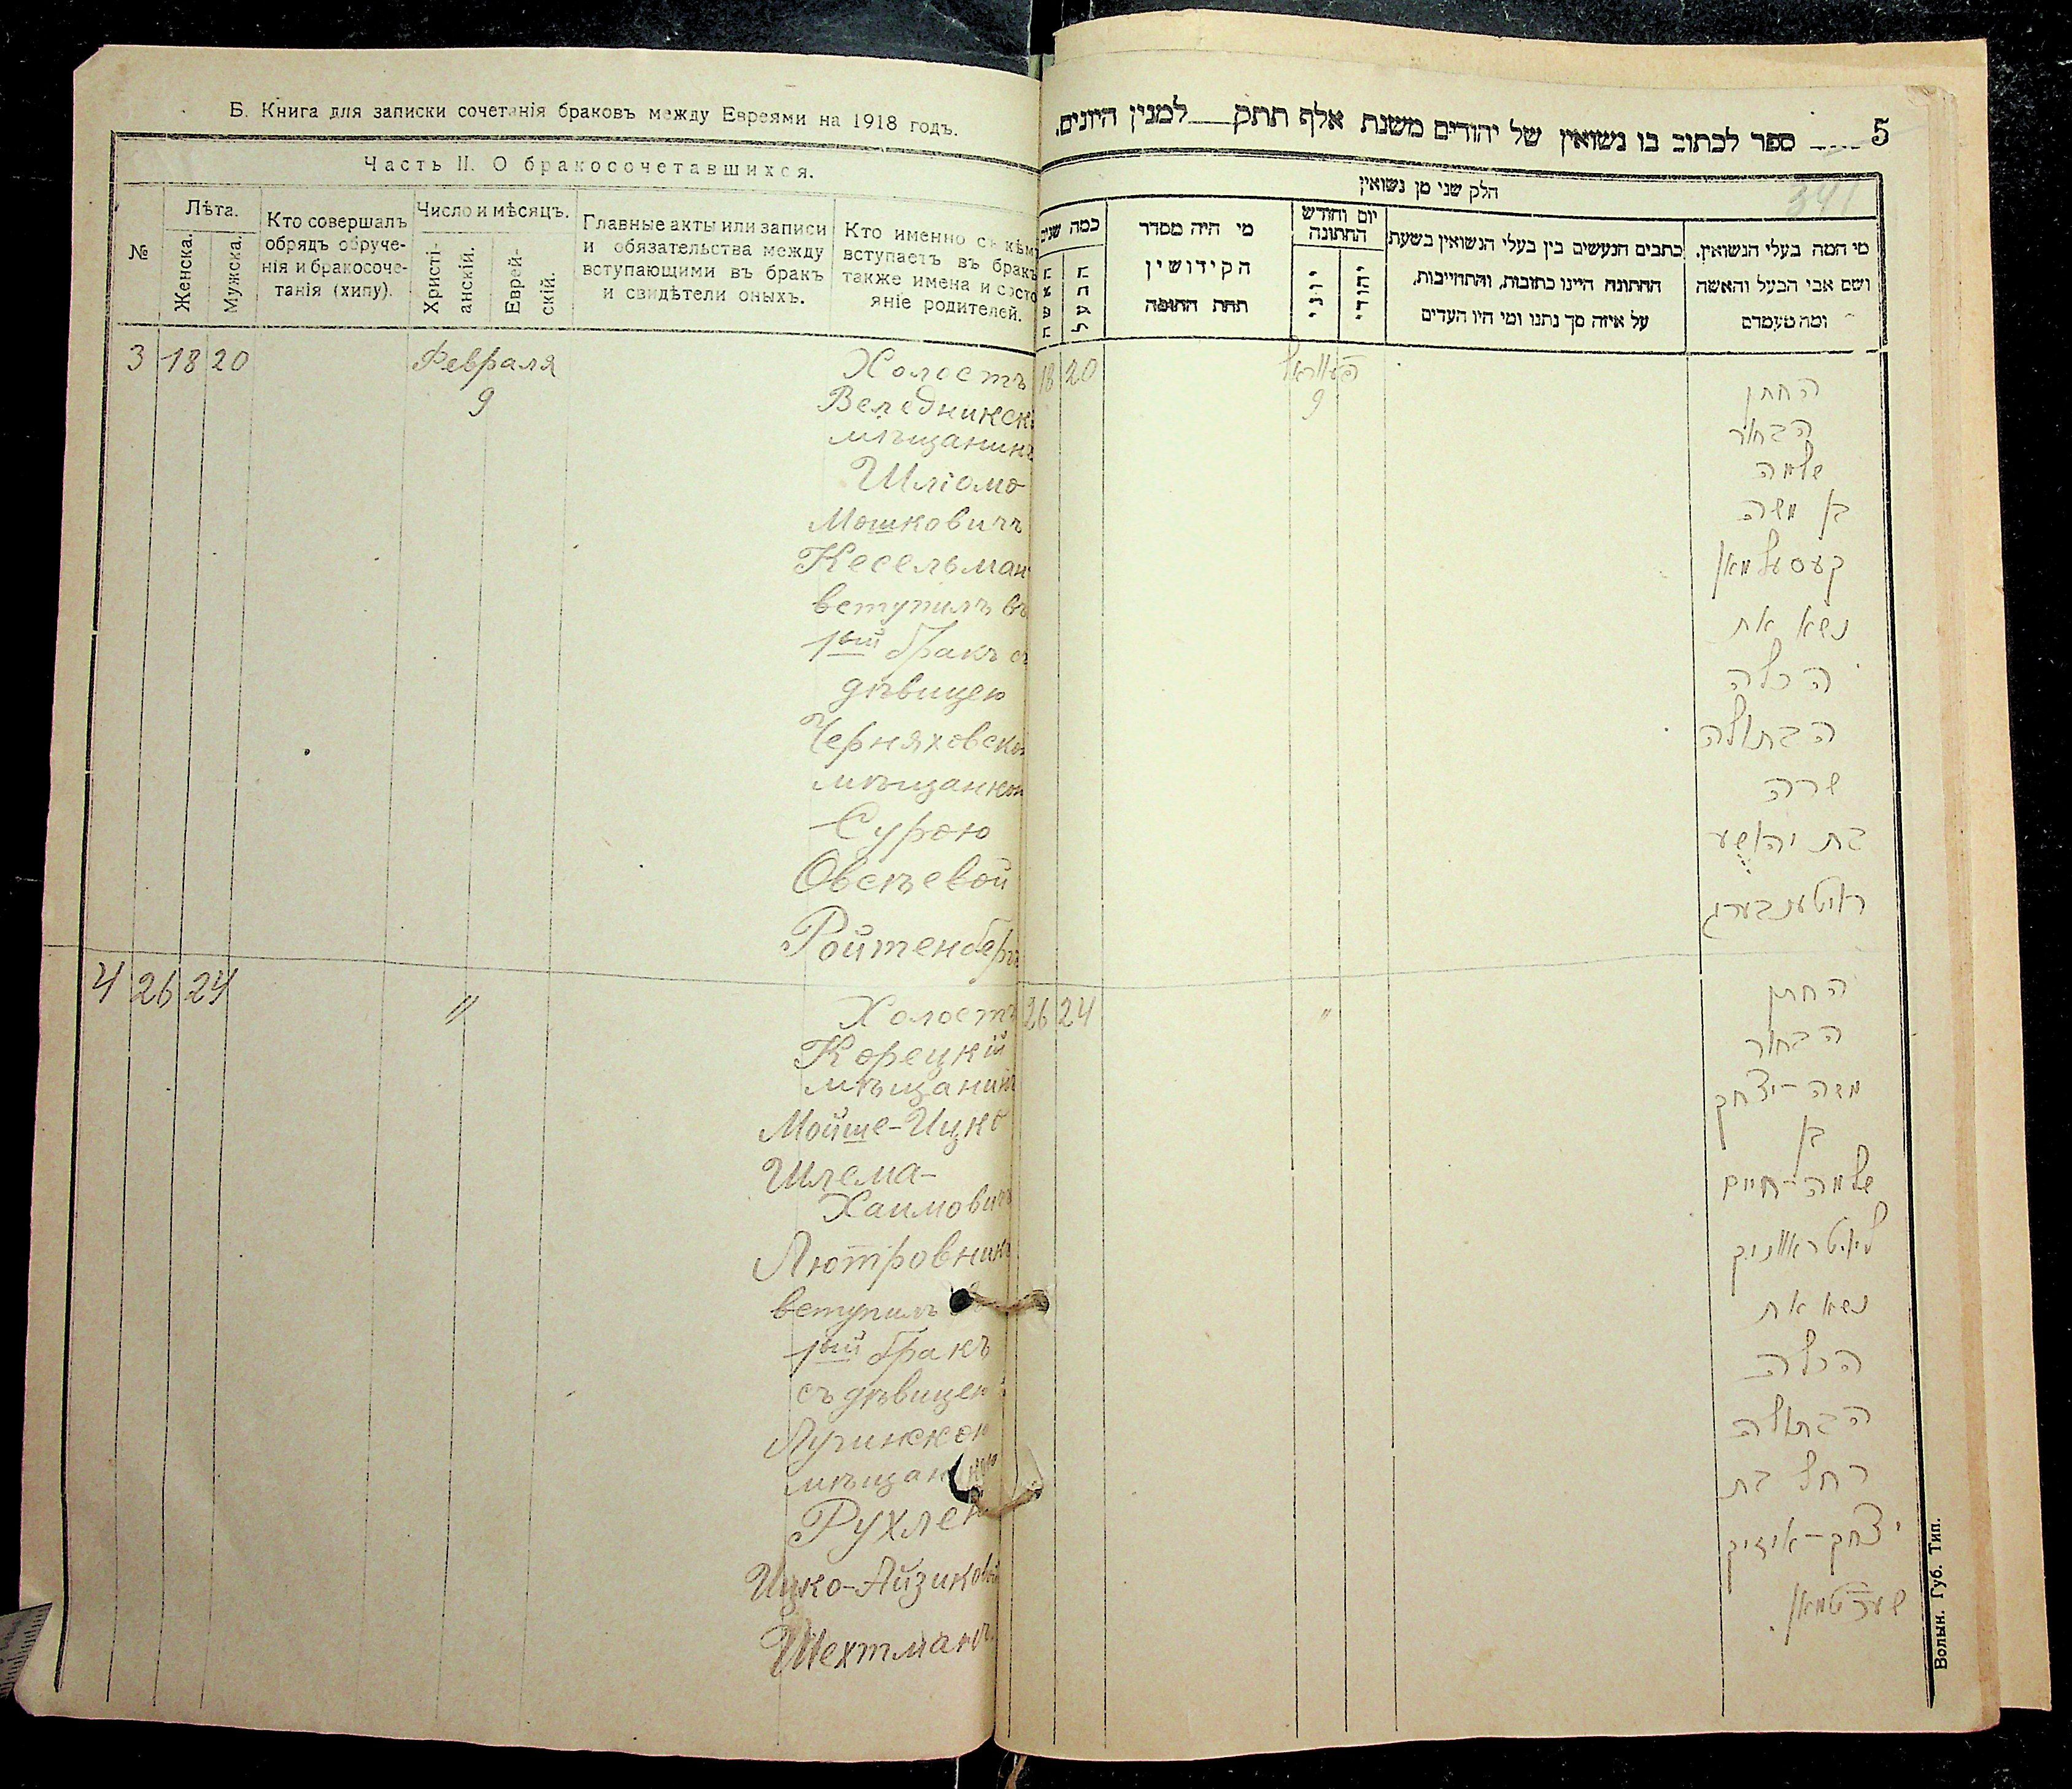 Б. Книга для записки сочетанія браковъ между Евреями на 1918 годъ.
Часть II. О бракосочетавшихся.
№
Лѣта.
Женска.
Мужска.
Кто совершалъ
обрядъ обруче-
нія и бракосоче-
танія (хипу).
Число и мѣсяцъ.
Христі-
анскій.
Еврей-
скій.
Главные акты или записи
и обязательства между
вступающими въ бракъ
и свидѣтели оныхъ.
Кто именно съ кѣмъ
вступаетъ въ бракъ
также имена и состо
яніе родителей.
3 18 20
Февраля
9
Холостъ
Веледникск
мѣщанинъ
Шліомо
Мошковичъ
Кесельман
вступилъ въ
1ый бракъ съ
дѣвицею
Черняховско
мѣщанкою
Сурою
Овсѣевой
Ройтенберг
4 26 24
"
Холостъ
Корецкій
мѣщанинъ
Мойше-Ицко
Шлема-
Хаимович
Лютровник
вступилъ
1ый бракъ
съ дѣвицею
Лугинскою
мѣщанкою
Рухлею
Ицко-Айзиковой
Шехтманъ.
5
ספר לכתוב בו נשואין של יהודים משנת אלף תתק למנין היונים.
341
חלק שני מן נשואין
כמה שנים
האשה
הבעל
מי היה מסדר
הקידושין
תחת החופה
יום וחודש
החתונה
יוני
יהודי
כתבים הנעשים בין בעלי הנשואין בשעת
החתונה היינו כתובות, והתחייבות,
על איזה סך נתנו ומי היו העדים
מי המה בעלי הנשואין.
ושם אבי הבעל והאשה
ומה מעמדם
18 20
9
החתן
הבחור
שלמה
בן משה
קעסעלמאן
נשא את
הכלה
הבתולה
שרה
בת יהושע
ראיטענבערג
26 24
"
החתן
הבחור
משה-יצחק
בן
שלמה-חיים
ליוטראווניק
נשא את
הכלה
הבתולה
רחל בת
יצחק-אייזיק
שעכטמאן.
Волын. Губ. Тип.